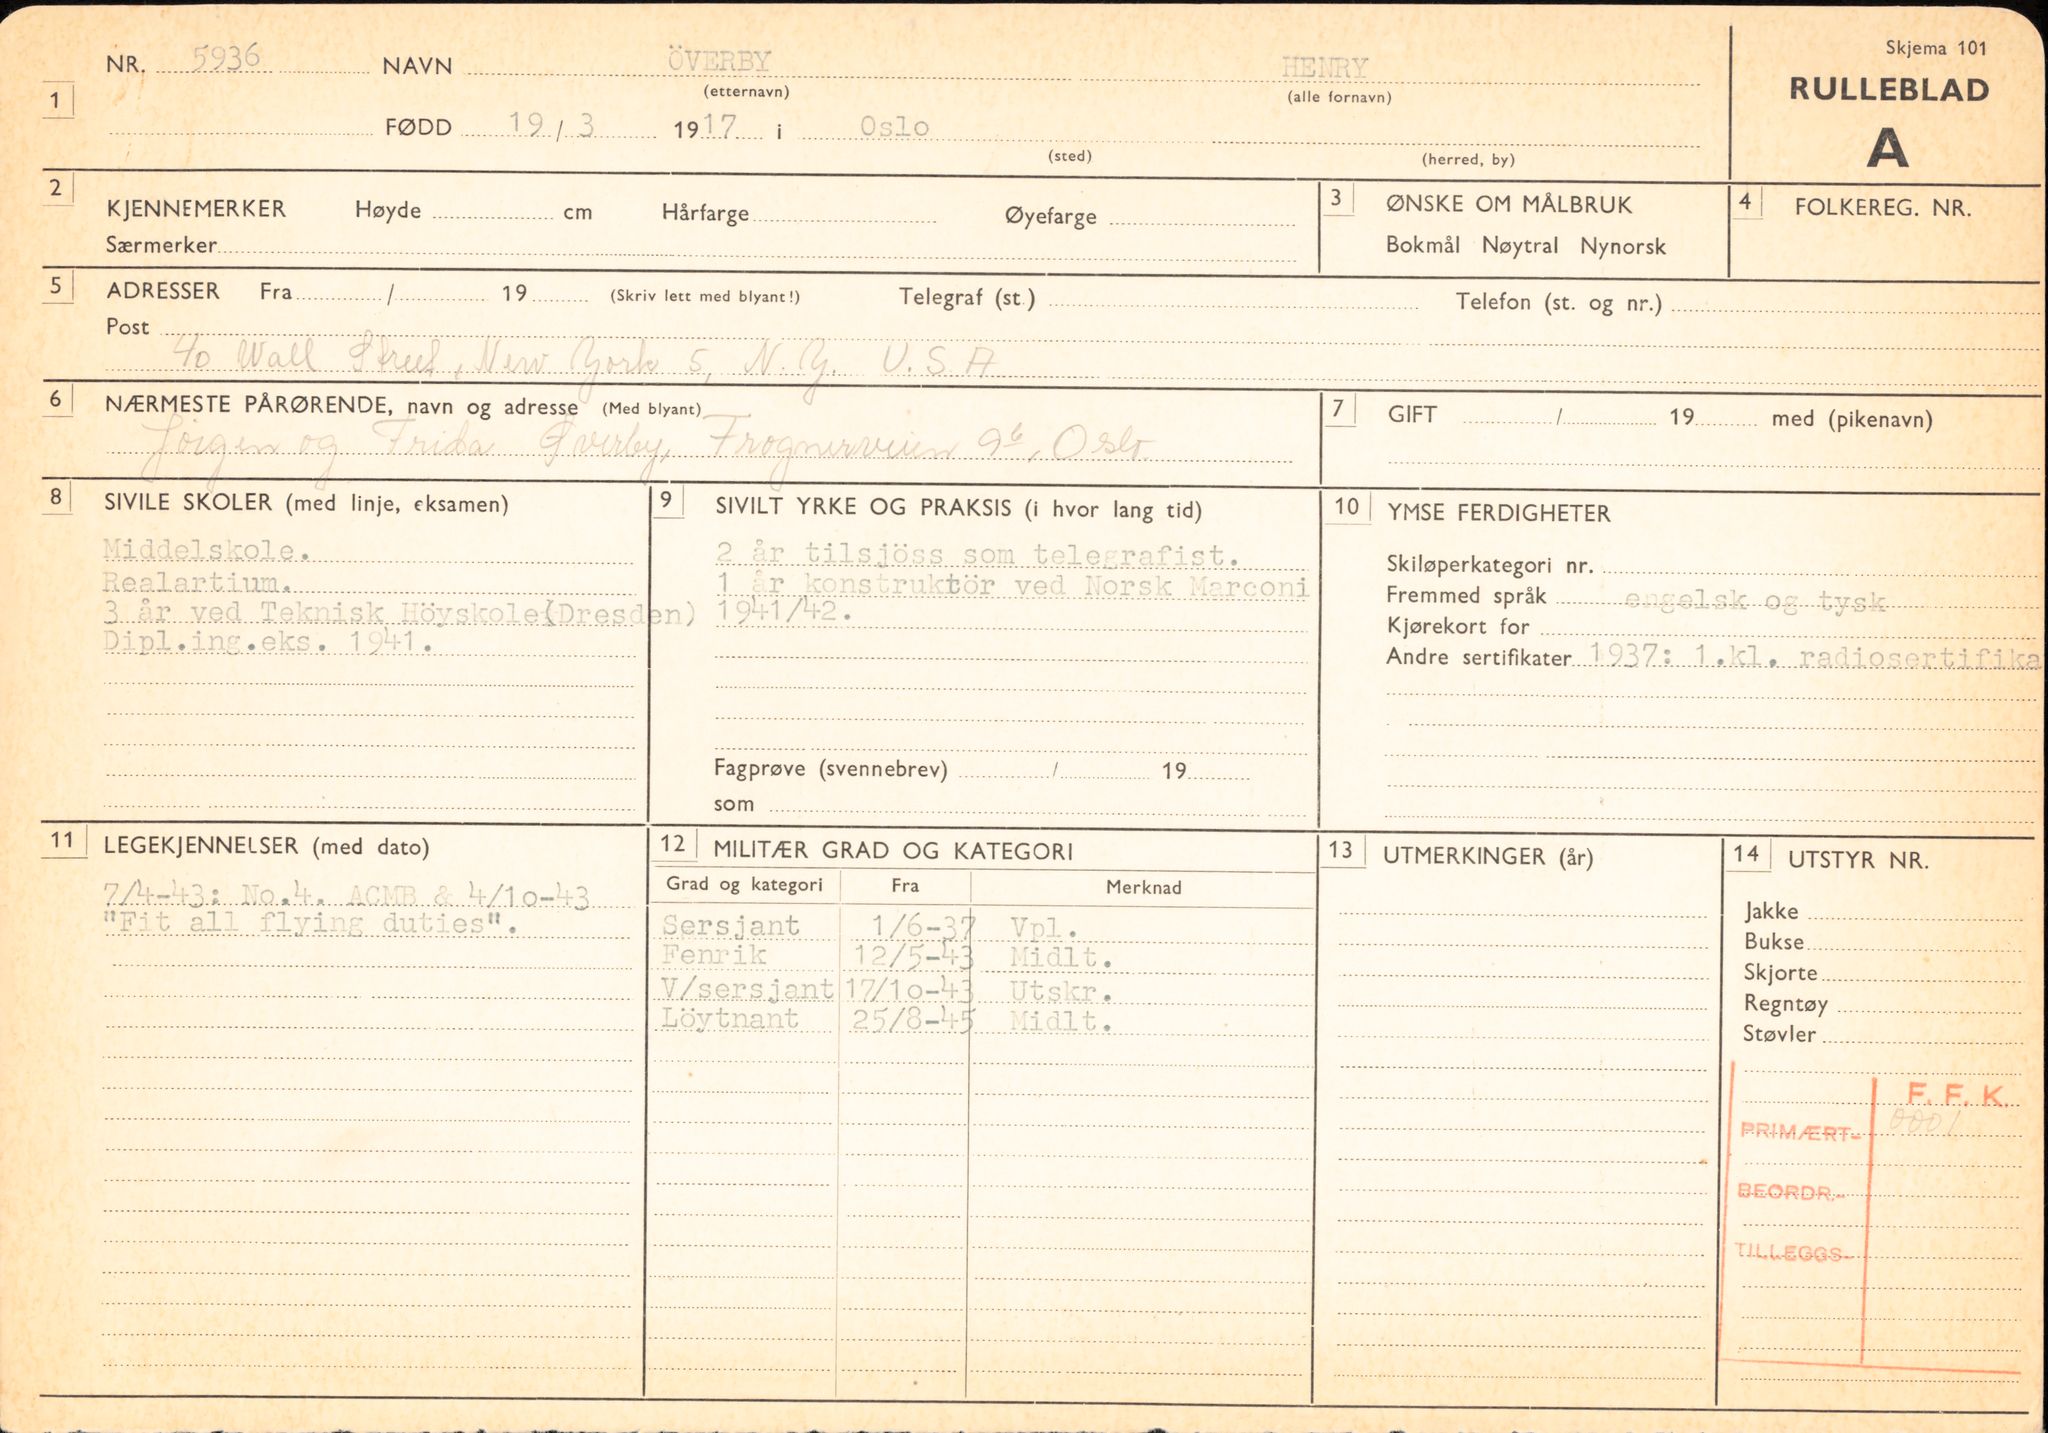 Skjema 101
RULLEBLAD
A
1 NR. 5936 NAVN ÖVERBY HENRY
(etternavn) (alle fornavn)
FØDD 19/3 1917 i Oslo
(sted) (herred, by)
2 KJENNEMERKER Høyde cm Hårfarge Øyefarge
Særmerker
3 ØNSKE OM MÅLBRUK
Bokmål Nøytral Nynorsk
4 FOLKEREG. NR.
5 ADRESSER Fra / 19 (Skriv lett med blyant!) Telegraf (st.) Telefon (st. og nr.)
Post
40 Wall Street, New York 5, N.Y. U.S.A
6 NÆRMESTE PÅRØRENDE, navn og adresse (Med blyant)
Jørgen og Frida Øverby, Frognerveien 9b, Oslo
7 GIFT / 19 med (pikenavn)
8 SIVILE SKOLER (med linje, eksamen)
Middelskole.
Realartium.
3 år ved Teknisk Höyskole(Dresden)
Dipl.ing.eks. 1941.
9 SIVILT YRKE OG PRAKSIS (i hvor lang tid)
2 år tilsjöss som telegrafist.
1 år konstruktör ved Norsk Marconi
1941/42.
Fagprøve (svennebrev) / 19
som
10 YMSE FERDIGHETER
Skiløperkategori nr.
Fremmed språk engelsk og tysk
Kjørekort for
Andre sertifikater 1937: 1.kl. radiosertifika
11 LEGEKJENNELSER (med dato)
7/4-43: No.4. ACMB & 4/10-43
"Fit all flying duties".
12 MILITÆR GRAD OG KATEGORI
Grad og kategori Fra Merknad
Sersjant 1/6-37 Vpl.
Fenrik 12/5-43 Midlt.
V/sersjant 17/10-43 Utskr.
Löytnant 25/8-45 Midlt.
13 UTMERKINGER (år)
14 UTSTYR NR.
Jakke
Bukse
Skjorte
Regntøy
Støvler
F. F. K.
PRIMÆRT- 0001
BEORDR.-
TILLEGGS-